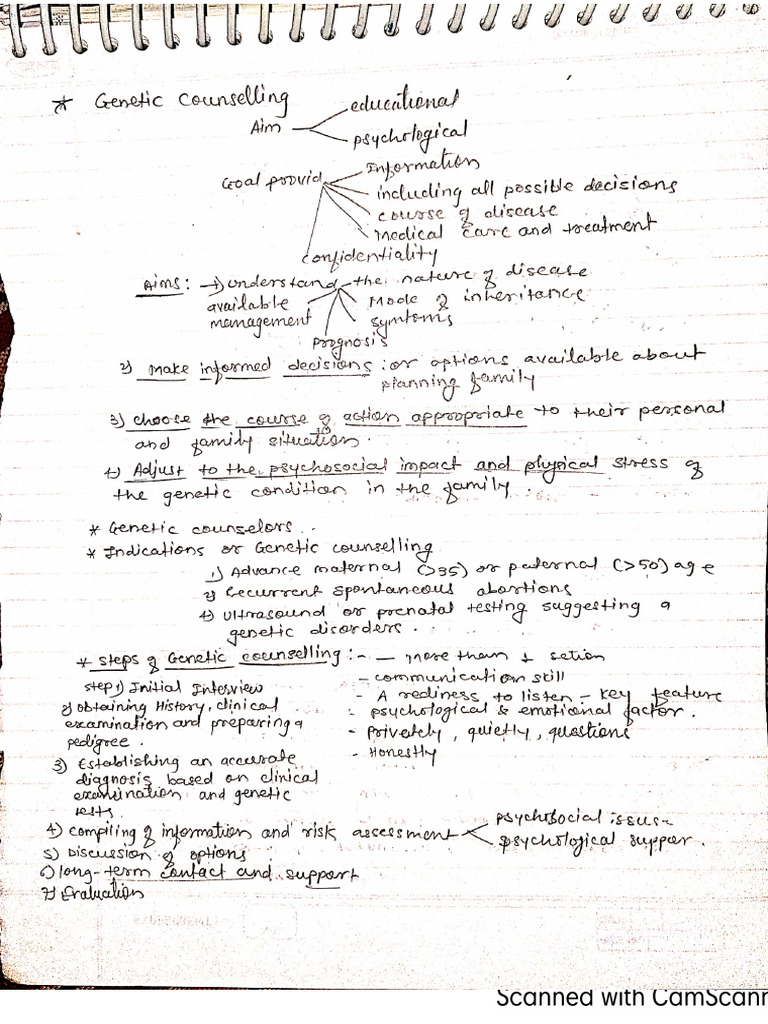 * Genetic Counselling
educational
Aim
psychological
Information
Goal provid
including all possible decisions
course of disease
Medical care and treatment
confidentiality
Aims: → understand the nature of disease
available Mode of inheritance
management symtoms
prognosis
2) Make informed decisions : or options available about
planning family
3) choose the course of action appropriate to their personal
and family situation.
4) Adjust to the psychosocial impact and physical stress of
the genetic condition in the family.
* Genetic counselors..
* Indications or Genetic counselling
1) Advance maternal (>35) or paternal (>50) age
2) Recurrent spontaneous abortions
4) Ultrasound or prenatal testing suggesting a
genetic disorders.
* Steps of Genetic counselling :- — More than 1 setion
- communication skill
step 1) Initial Interview
- A readiness to listen - key feature
2) obtaining History, clinical
- psychological & emotional factor.
examination and preparing a
- privetely, quietly, questions
pedigree.
- Honestly
3) Establishing an accurate
diagnosis based on clinical
examination and genetic
tests.
psychosocial issus
4) compiling of information and risk assessment
psychological suppor.
5) Discussion of options
6) long-term contact and support
7) Evaluation
Scanned with CamScann